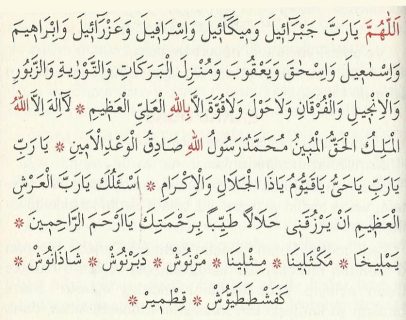 اَللّٰهُمَّ يَارَبَّ جَبْرَآئِيلَ وَمِيكَآئِيلَ وَاِسْرَافِيلَ وَعَزْرَآئِيلَ وَاِبْرَاهِيمَ
وَاِسْمٰعِيلَ وَاِسْحٰقَ وَيَعْقُوبَ وَمُنْزِلَ الْبَرَكَاتِ وَالتَّوْرٰيةِ وَالزَّبُورِ
وَالْاِنْجِيلِ وَالْفُرْقَانِ وَلَاحَوْلَ وَلَاقُوَّةَ اِلَّا بِاللهِ الْعَلِيِّ الْعَظِيمِ * لَآاِلٰهَ اِلَّا اللهُ
الْمَلِكُ الْحَقُّ الْمُبِينُ مُحَمَّدٌ رَسُولُ اللهِ صَادِقُ الْوَعْدِ الْاَمِينِ * يَا رَبِّ
يَارَبِّ يَاحَيُّ يَاقَيُّومُ يَاذَا الْجَلَالِ وَالْاِكْرَامِ * اَسْئَلُكَ يَارَبَّ الْعَرْشِ
الْعَظِيمِ اَنْ يَرْزُقَنِي حَلَالًا طَيِّبًا بِرَحْمَتِكَ يَااَرْحَمَ الرَّاحِمِينَ *
يَمْلِيخَا * مَكْثَلِينَا * مِثْلِينَا * مَرْنُوشْ * دَبَرْنُوشْ * شَاذَنُوشْ *
كَفَشْطَطَيُّوشْ * قِطْمِيرْ *